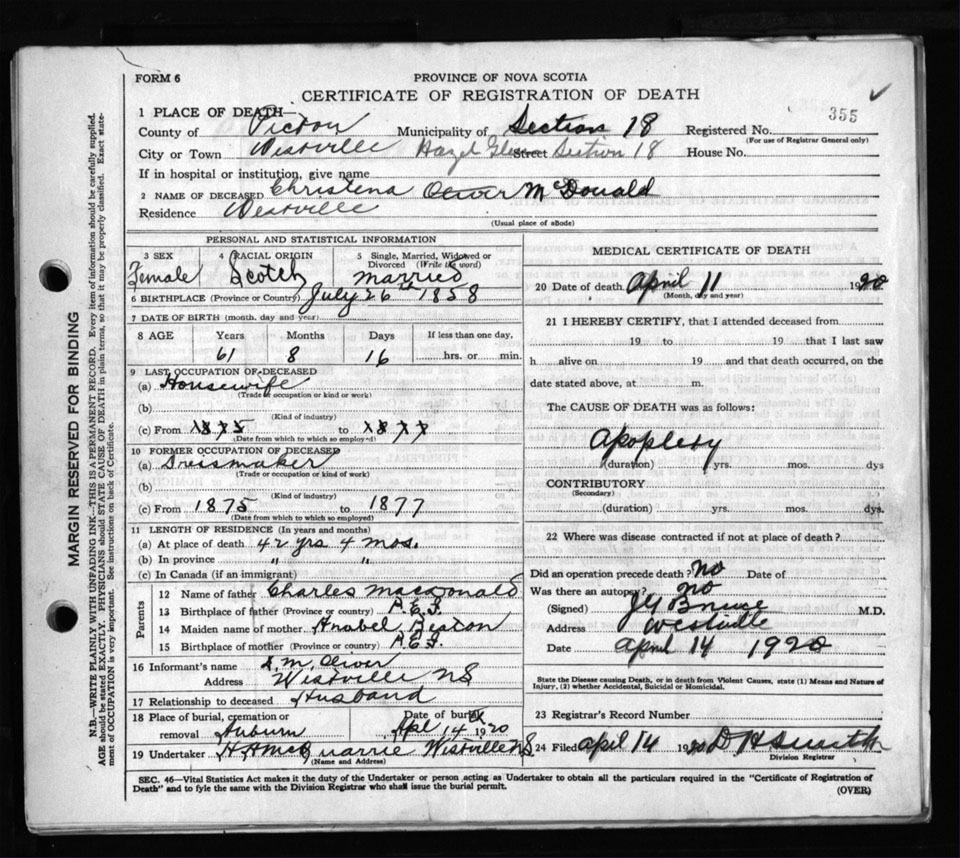 FORM 6
PROVINCE OF NOVA SCOTIA
CERTIFICATE OF REGISTRATION OF DEATH
355
1 PLACE OF DEATH—
County of Pictou Municipality of Section 18 Registered No.
(For use of Registrar General only)
City or Town Westville Hazel Glen Street Section 18 House No.
If in hospital or institution, give name
2 NAME OF DECEASED Christena Oliver McDonald
Residence Westville
(Usual place of aBode)
PERSONAL AND STATISTICAL INFORMATION
3 SEX 4 RACIAL ORIGIN 5 Single, Married, Widowed or Divorced (Write the word)
Female Scotch Married
6 BIRTHPLACE (Province or Country) July 26th 1858
7 DATE OF BIRTH (month, day and year)
8 AGE Years Months Days If less than one day,
61 8 16 hrs. or min.
9 LAST OCCUPATION OF DECEASED
(a) Housewife
(Trade or occupation or kind or work)
(b)
(Kind of industry)
(c) From 1875 to 1877
(Date from which to which so employed)
10 FORMER OCCUPATION OF DECEASED
(a) Dressmaker
(Trade or occupation or kind of work)
(b)
(Kind of industry)
(c) From 1875 to 1877
(Date from which to which so employed)
11 LENGTH OF RESIDENCE (In years and months)
(a) At place of death 42 yrs 4 mos.
(b) In province " "
(c) In Canada (if an immigrant)
Parents
12 Name of father Charles Macdonald
13 Birthplace of father (Province or country) P.E.I.
14 Maiden name of mother Anabel Beaton
15 Birthplace of mother (Province or country) P.E.I.
16 Informant's name Oliver
Address Westville NS
17 Relationship to deceased Husband
18 Place of burial, cremation or removal Auburn Date of burial Apl 14 1920
19 Undertaker Westville NS
(Name and Address)
MEDICAL CERTIFICATE OF DEATH
20 Date of death April 11 1920
(Month, day and year)
21 I HEREBY CERTIFY, that I attended deceased from
19 to 19 that I last saw
h alive on 19 and that death occurred, on the
date stated above, at m.
The CAUSE OF DEATH was as follows:
Apoplexy
(duration) yrs. mos. dys
CONTRIBUTORY
(Secondary)
(duration) yrs. mos. dys.
22 Where was disease contracted if not at place of death?
Did an operation precede death? No Date of
Was there an autopsy? No
(Signed) M.D.
Address Westville
Date April 14 1920
State the Disease causing Death, or in death from Violent Causes, state (1) Means and Nature of
Injury, (2) whether Accidental, Suicidal or Homicidal.
23 Registrar's Record Number
24 Filed April 14 1920 D H Smith
Division Registrar
SEC. 46—Vital Statistics Act makes it the duty of the Undertaker or person acting as Undertaker to obtain all the particulars required in the "Certificate of Registration of
Death" and to fyle the same with the Division Registrar who shall issue the burial permit.
(OVER)
MARGIN RESERVED FOR BINDING
N.B.—WRITE PLAINLY WITH UNFADING INK—THIS IS A PERMANENT RECORD. Every item of information should be carefully supplied.
AGE should be stated EXACTLY. PHYSICIANS should STATE CAUSE OF DEATH in plain terms, so that it may be properly classified. Exact state-
ment of OCCUPATION is very important. See instructions on back of Certificate.